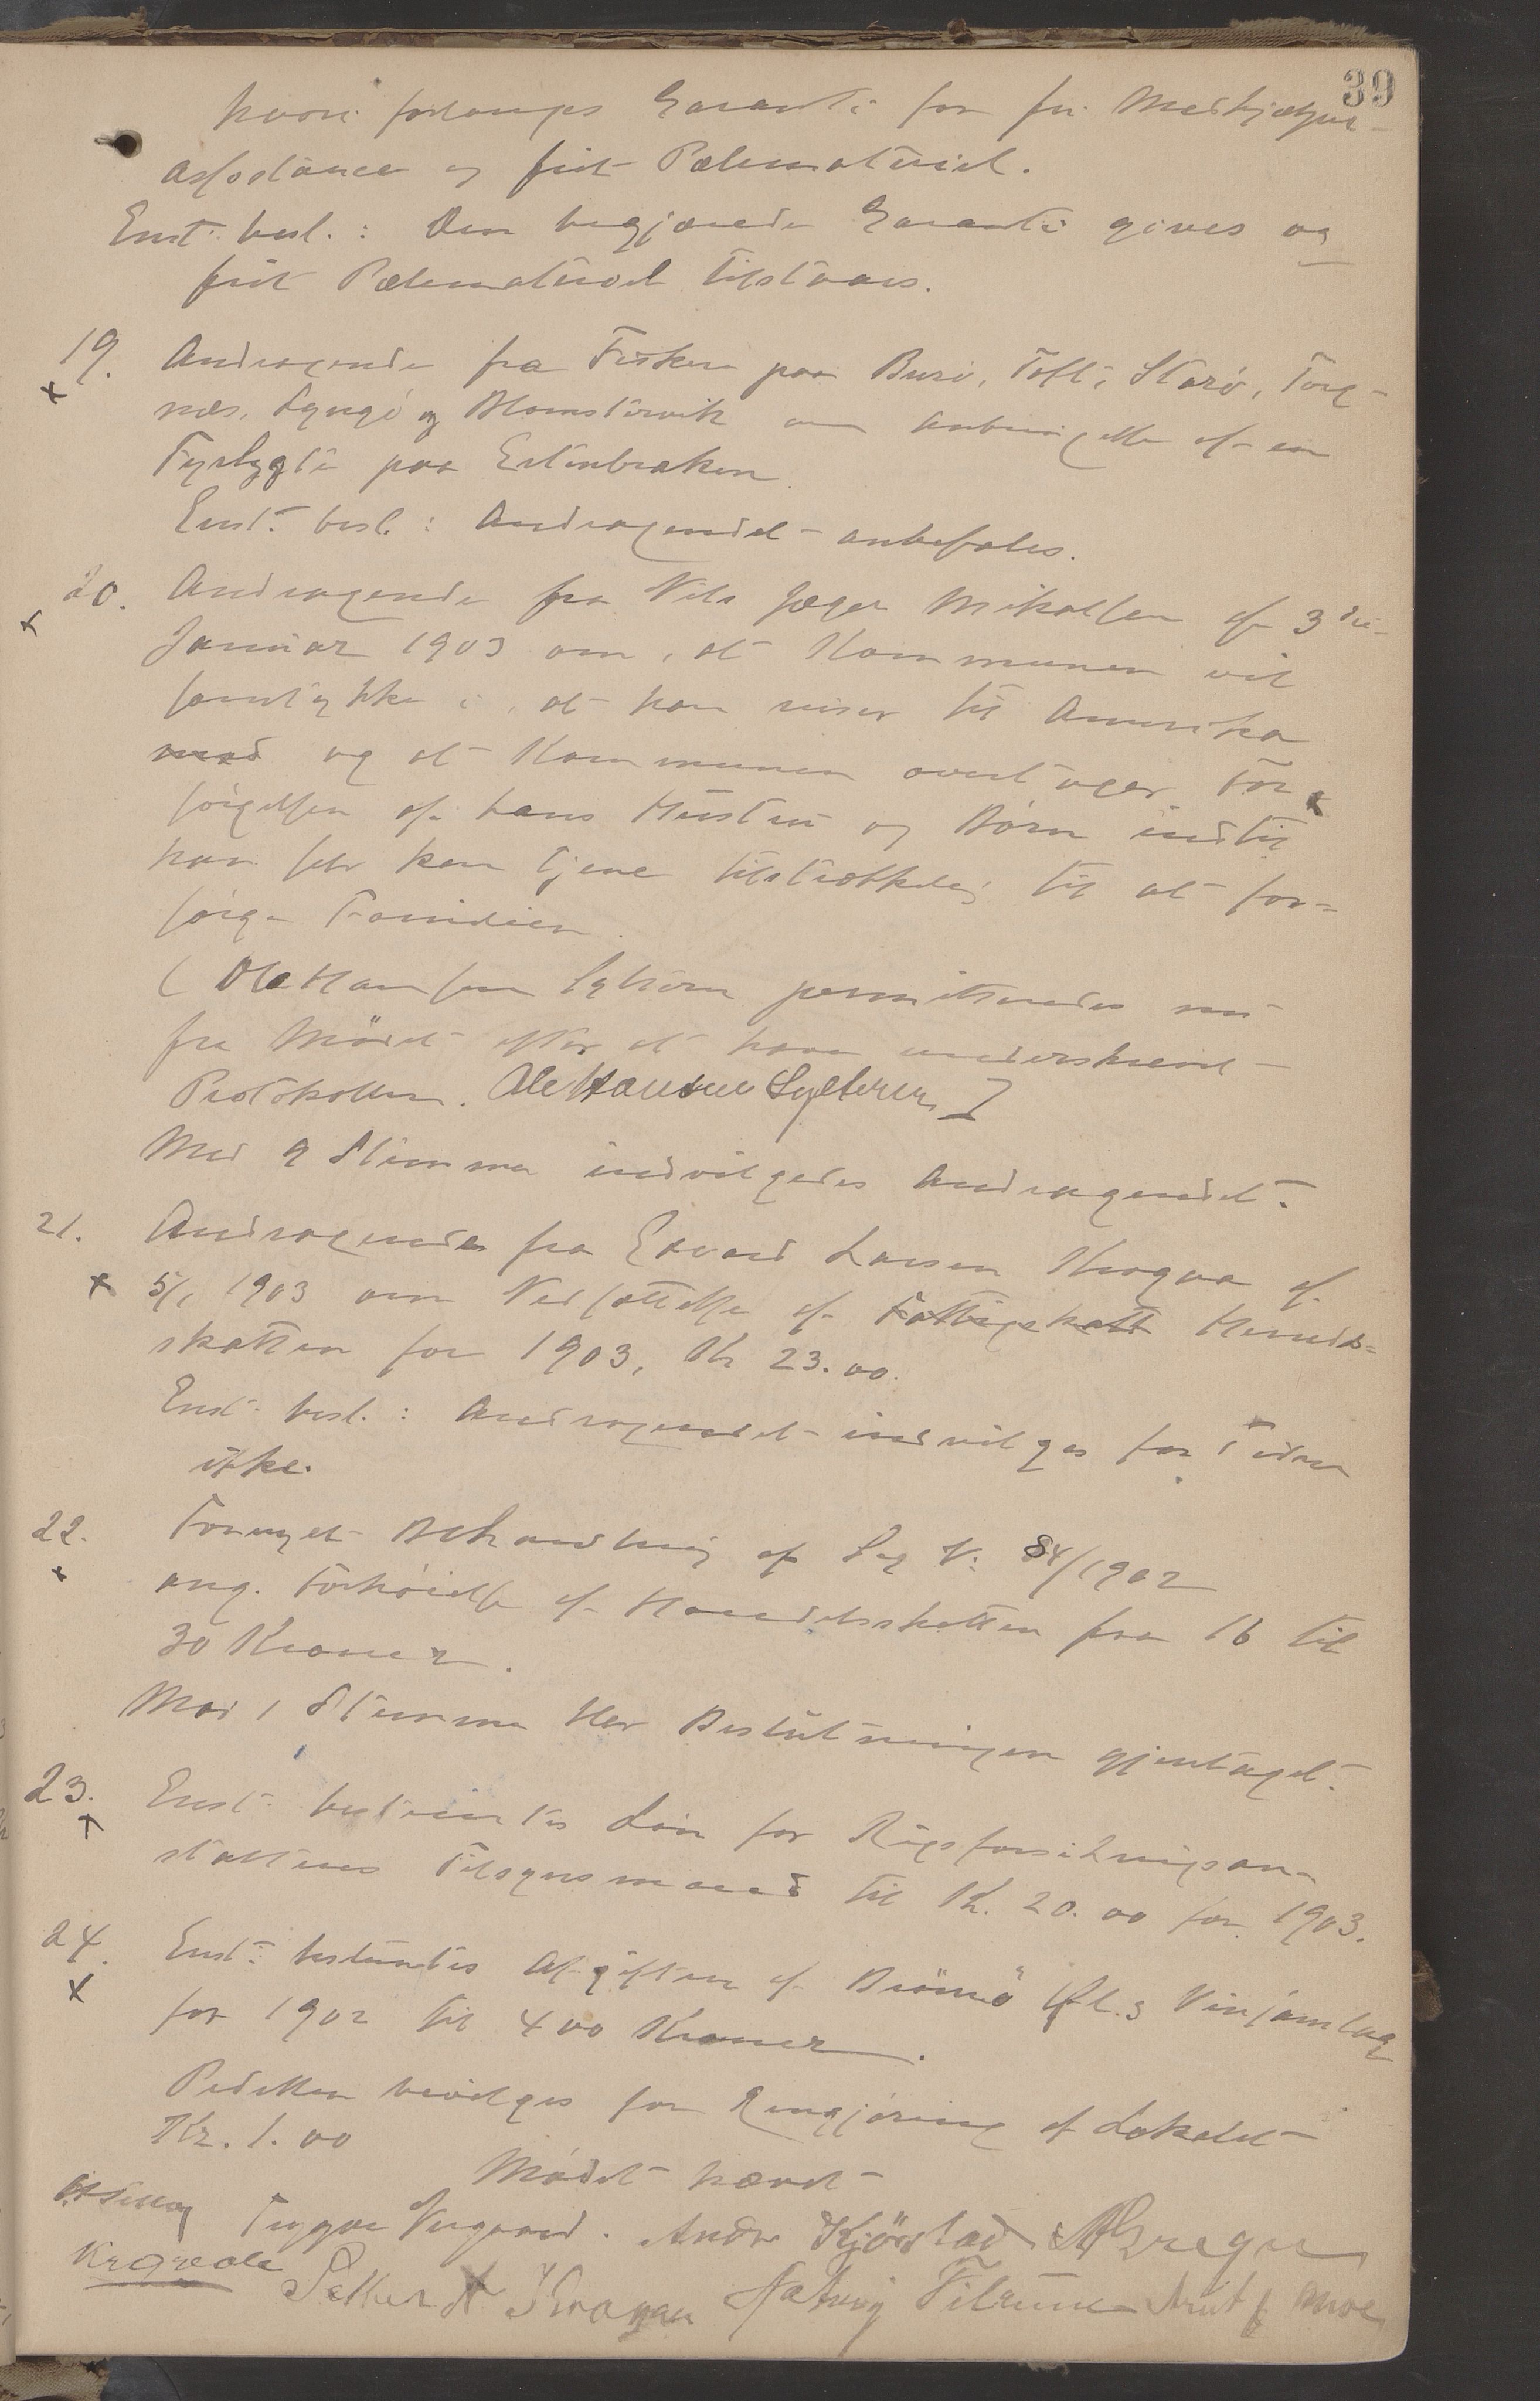 39
hvori forlanges Garanti for fri Medhjælper-
assistance og frit Pælemateriel.
Enst. besl.: Den begjærede Garanti gives og
frit Pælemateriel tilstaaes.
19. Andragende fra Fiskere paa Burø, Toft, Storø, Torg-
næs, Lyngø og Blomstervik om Anbringelse af en
Fyrlygte paa Estenbraken.
Enst. besl.: Andragendet anbefales.
20. Andragende fra Nils Jæger Mikalsen af 3die
Januar 1903 om, at Kommunen vil
samtykke i, at han reiser til Amerika
med og at Kommunen overtager For-
sørgelsen af hans Hustru og Børn indtil
han selv kan tjene tilstrækkelig til at for-
sørge Familien.
(Ole Hansen Sylteren permitteredes nu
fra Mødet efter at have underskrevet
Protokollen. Ole Hansen Sylteren)
Med 9 Stemmer indvilgedes Andragendet.
21. Andragende fra Edvard Larsen Kroqva af
5/1 1903 om Nedsættelse af Fattigskatt Herreds-
skatten for 1903, Kr 23.00.
Enst. besl.: Andragendet indvilges for Tiden
ikke.
22. Fornyet Behandling af Sag N: 84/1902
ang. Forhøielse af Handelsskatten fra 16 til
30 Kroner.
Mod 1 Stemme blev Beslutningen gjentaget.
23. Enst. bestemtes Løn for Rigsforsikringsan-
staltens Tilsynsmand til Kr. 20.00 for 1903.
24. Enst. bestemtes Afgiften af Brönnö Øl & Vinsamlag
for 1902 til 400 Kroner.
Pedellen bevilges for Rengjøring af Lokalet
Kr. 1.00
Mødet hævet
Trygve Andr Kjörstad
Petter Hartvig Tilrum